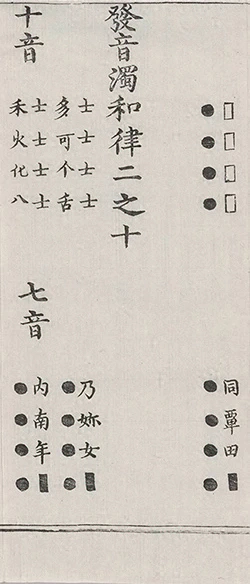 □□□□同覃田■
●●●●●●●●
發音濁和律二之十
士士士士乃妳女■
多可个舌●●●●
十音
士士士士
禾火化八
七音
內南年■
●●●●